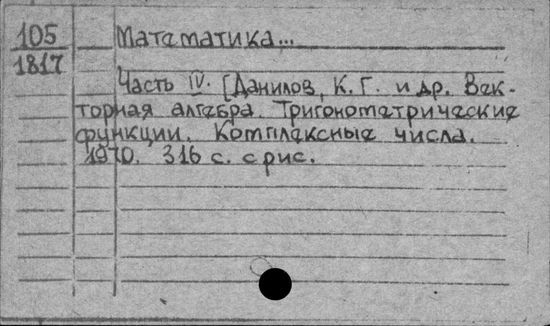 105 Математика...
1817
Часть IV. [Данилов, К. Г. и др. Век-
торная алгебра. Тригонометрические
функции. Комплексные числа.
1970. 316 с. с рис.